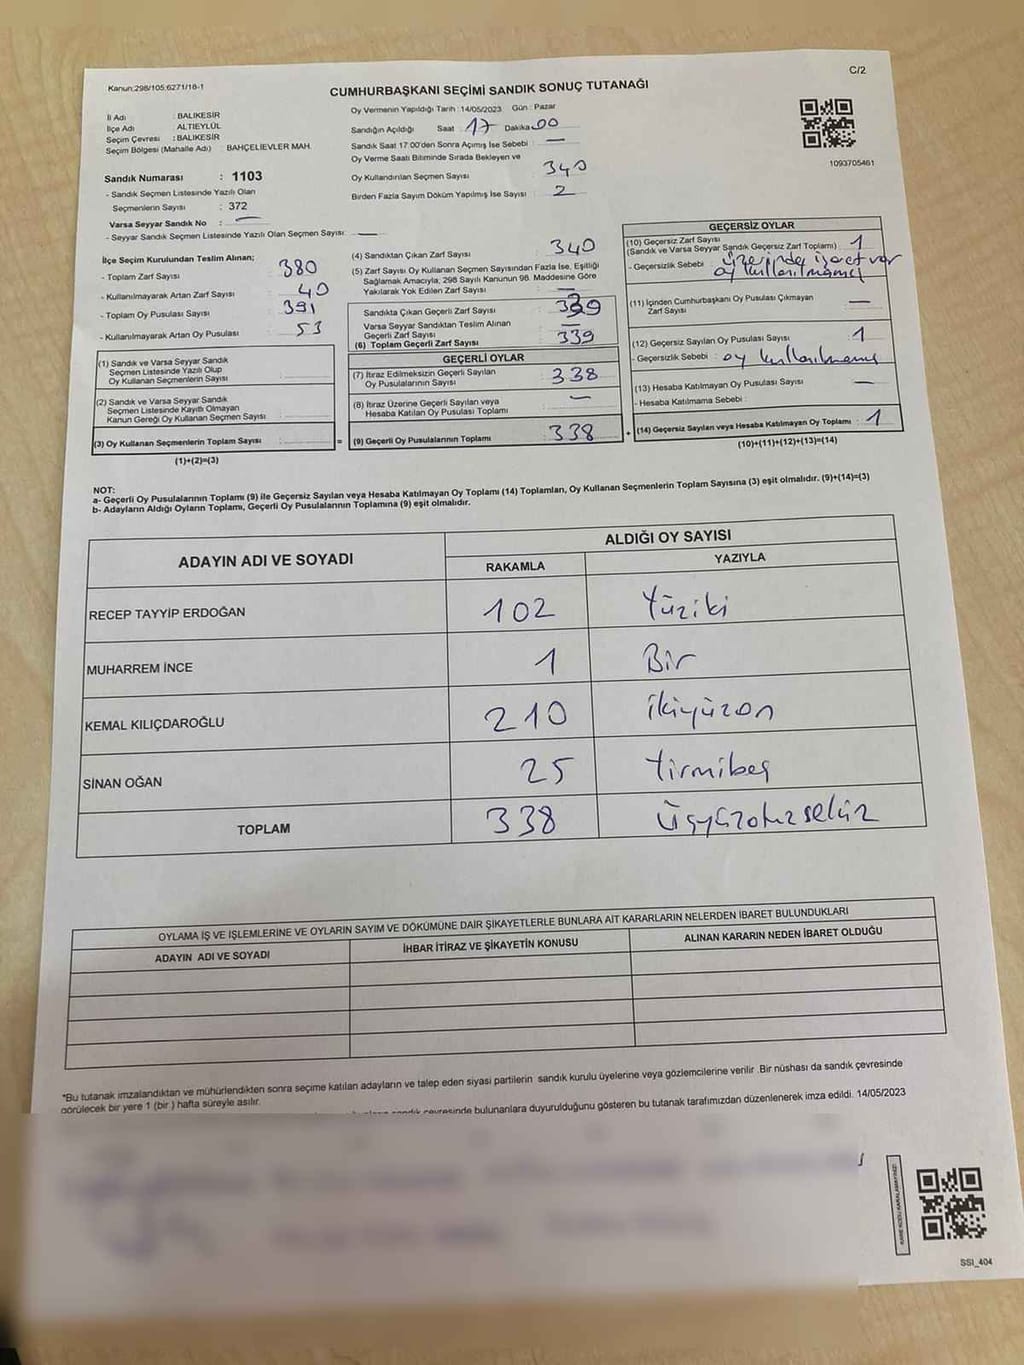 Kanun:298/105;6271/18-1
C/2
CUMHURBAŞKANI SEÇİMİ SANDIK SONUÇ TUTANAĞI
İl Adı : BALIKESİR
İlçe Adı ALTIEYLÜL
Seçim Çevresi : BALIKESİR
Seçim Bölgesi (Mahalle Adı) : BAHÇELİEVLER MAH.
Sandık Numarası : 1103
- Sandık Seçmen Listesinde Yazılı Olan
Seçmenlerin Sayısı : 372
Varsa Seyyar Sandık No : —
- Seyyar Sandık Seçmen Listesinde Yazılı Olan Seçmen Sayısı: —
Oy Vermenin Yapıldığı Tarih : 14/05/2023 Gün : Pazar
Sandığın Açıldığı Saat : 17 Dakika 00
Sandık Saat 17:00'den Sonra Açımış İse Sebebi : —
Oy Verme Saati Bitiminde Sırada Bekleyen ve
Oy Kullandırılan Seçmen Sayısı : 340
Birden Fazla Sayım Döküm Yapılmış İse Sayısı : 2
1093705461
İlçe Seçim Kurulundan Teslim Alınan;
- Toplam Zarf Sayısı : 380
- Kullanılmayarak Artan Zarf Sayısı : 40
- Toplam Oy Pusulası Sayısı : 391
- Kullanılmayarak Artan Oy Pusulası : 53
(1) Sandık ve Varsa Seyyar Sandık
Seçmen Listesinde Yazılı Olup
Oy Kullanan Seçmenlerin Sayısı :
(2) Sandık ve Varsa Seyyar Sandık
Seçmen Listesinde Kayıtlı Olmayan
Kanun Gereği Oy Kullanan Seçmen Sayısı :
(3) Oy Kullanan Seçmenlerin Toplam Sayısı :
(1)+(2)=(3)
(4) Sandıktan Çıkan Zarf Sayısı : 340
(5) Zarf Sayısı Oy Kullanan Seçmen Sayısından Fazla İse, Eşitliği
Sağlamak Amacıyla; 298 Sayılı Kanunun 98. Maddesine Göre
Yakılarak Yok Edilen Zarf Sayısı : —
Sandıkta Çıkan Geçerli Zarf Sayısı : 339
Varsa Seyyar Sandıktan Teslim Alınan
Geçerli Zarf Sayısı : —
(6) Toplam Geçerli Zarf Sayısı : 339
GEÇERLİ OYLAR
(7) İtiraz Edilmeksizin Geçerli Sayılan
Oy Pusulalarının Sayısı : 338
(8) İtiraz Üzerine Geçerli Sayılan veya
Hesaba Katılan Oy Pusulası Toplamı : —
= (9) Geçerli Oy Pusulalarının Toplamı : 338
GEÇERSİZ OYLAR
(10) Geçersiz Zarf Sayısı
(Sandık ve Varsa Seyyar Sandık Geçersiz Zarf Toplamı) : 1
- Geçersizlik Sebebi : üzerinde işaret var
oy kullanılmamış
(11) İçinden Cumhurbaşkanı Oy Pusulası Çıkmayan
Zarf Sayısı : —
(12) Geçersiz Sayılan Oy Pusulası Sayısı : 1
- Geçersizlik Sebebi : oy kullanılmamış
(13) Hesaba Katılmayan Oy Pusulası Sayısı : —
- Hesaba Katılmama Sebebi :
+ (14) Geçersiz Sayılan veya Hesaba Katılmayan Oy Toplamı : 1
(10)+(11)+(12)+(13)=(14)
NOT:
a- Geçerli Oy Pusulalarının Toplamı (9) ile Geçersiz Sayılan veya Hesaba Katılmayan Oy Toplamı (14) Toplamları, Oy Kullanan Seçmenlerin Toplam Sayısına (3) eşit olmalıdır. (9)+(14)=(3)
b- Adayların Aldığı Oyların Toplamı, Geçerli Oy Pusulalarının Toplamına (9) eşit olmalıdır.
ADAYIN ADI VE SOYADI ALDIĞI OY SAYISI
RAKAMLA YAZIYLA
RECEP TAYYİP ERDOĞAN 102 Yüziki
MUHARREM İNCE 1 Bir
KEMAL KILIÇDAROĞLU 210 ikiyüzon
SİNAN OĞAN 25 Yirmibeş
TOPLAM 338 Üçyüzotuzsekiz
OYLAMA İŞ VE İŞLEMLERİNE VE OYLARIN SAYIM VE DÖKÜMÜNE DAİR ŞİKAYETLERLE BUNLARA AİT KARARLARIN NELERDEN İBARET BULUNDUKLARI
ADAYIN ADI VE SOYADI İHBAR İTİRAZ VE ŞİKAYETİN KONUSU ALINAN KARARIN NEDEN İBARET OLDUĞU
*Bu tutanak imzalandıktan ve mühürlendikten sonra seçime katılan adayların ve talep eden siyasi partilerin sandık kurulu üyelerine veya gözlemcilerine verilir .Bir nüshası da sandık çevresinde
görülecek bir yere 1 (bir ) hafta süreyle asılır.
sandık çevresinde bulunanlara duyurulduğunu gösteren bu tutanak tarafımızdan düzenlenerek imza edildi. 14/05/2023
SSI_404